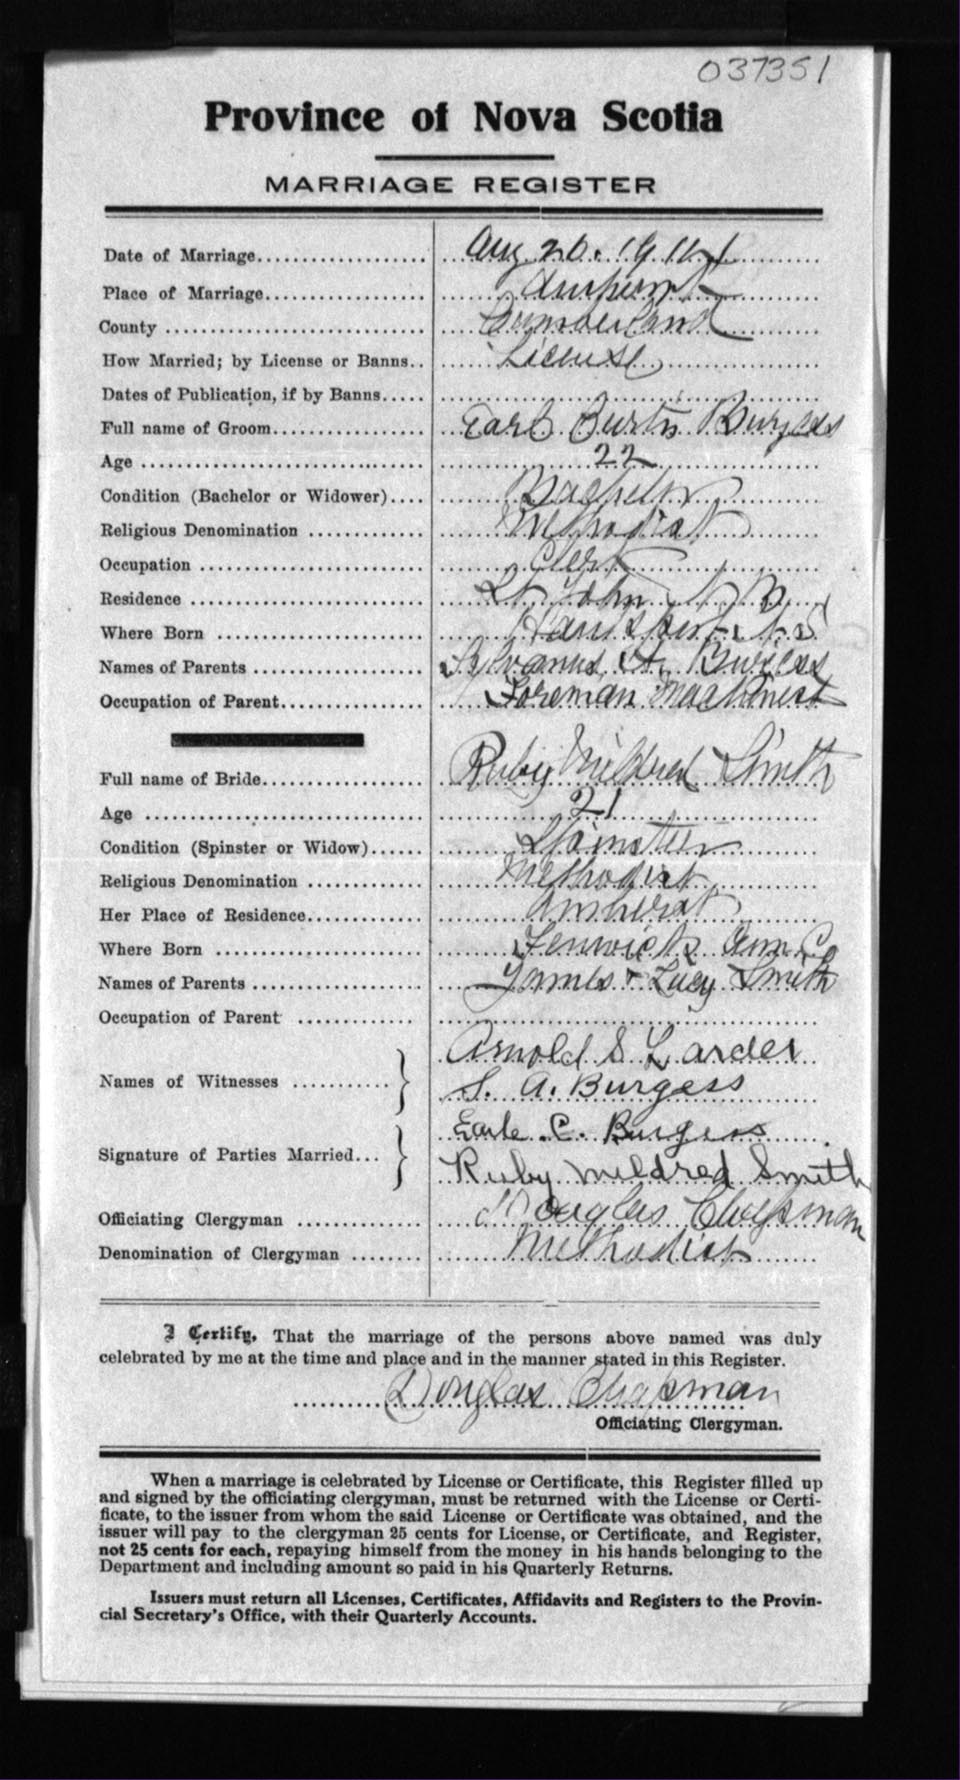 037351
Province of Nova Scotia
MARRIAGE REGISTER
Date of Marriage Aug 20. 19
Place of Marriage Amherst
County Cumberland
How Married; by License or Banns License
Dates of Publication, if by Banns
Full name of Groom Earl Curtis Burgess
Age 22
Condition (Bachelor or Widower) Bachelor
Religious Denomination Methodist
Occupation Clerk
Residence St John N B
Where Born Hantsport N S
Names of Parents Sylvanus A. Burgess
Occupation of Parent Foreman Machinist
Full name of Bride Ruby Mildred Smith
Age 21
Condition (Spinster or Widow) Spinster
Religious Denomination Methodist
Her Place of Residence Amherst
Where Born Fenwick Cum Co
Names of Parents James + Lucy Smith
Occupation of Parent
Names of Witnesses } Arnold S Larder
S. A. Burgess
Signature of Parties Married } Earle C. Burgess
Ruby Mildred Smith
Officiating Clergyman Douglas Chapman
Denomination of Clergyman Methodist
I Certify, That the marriage of the persons above named was duly
celebrated by me at the time and place and in the manner stated in this Register.
Douglas Chapman
Officiating Clergyman.
When a marriage is celebrated by License or Certificate, this Register filled up
and signed by the officiating clergyman, must be returned with the License or Certi-
ficate, to the issuer from whom the said License or Certificate was obtained, and the
issuer will pay to the clergyman 25 cents for License, or Certificate, and Register,
not 25 cents for each, repaying himself from the money in his hands belonging to the
Department and including amount so paid in his Quarterly Returns.
Issuers must return all Licenses, Certificates, Affidavits and Registers to the Provin-
cial Secretary's Office, with their Quarterly Accounts.